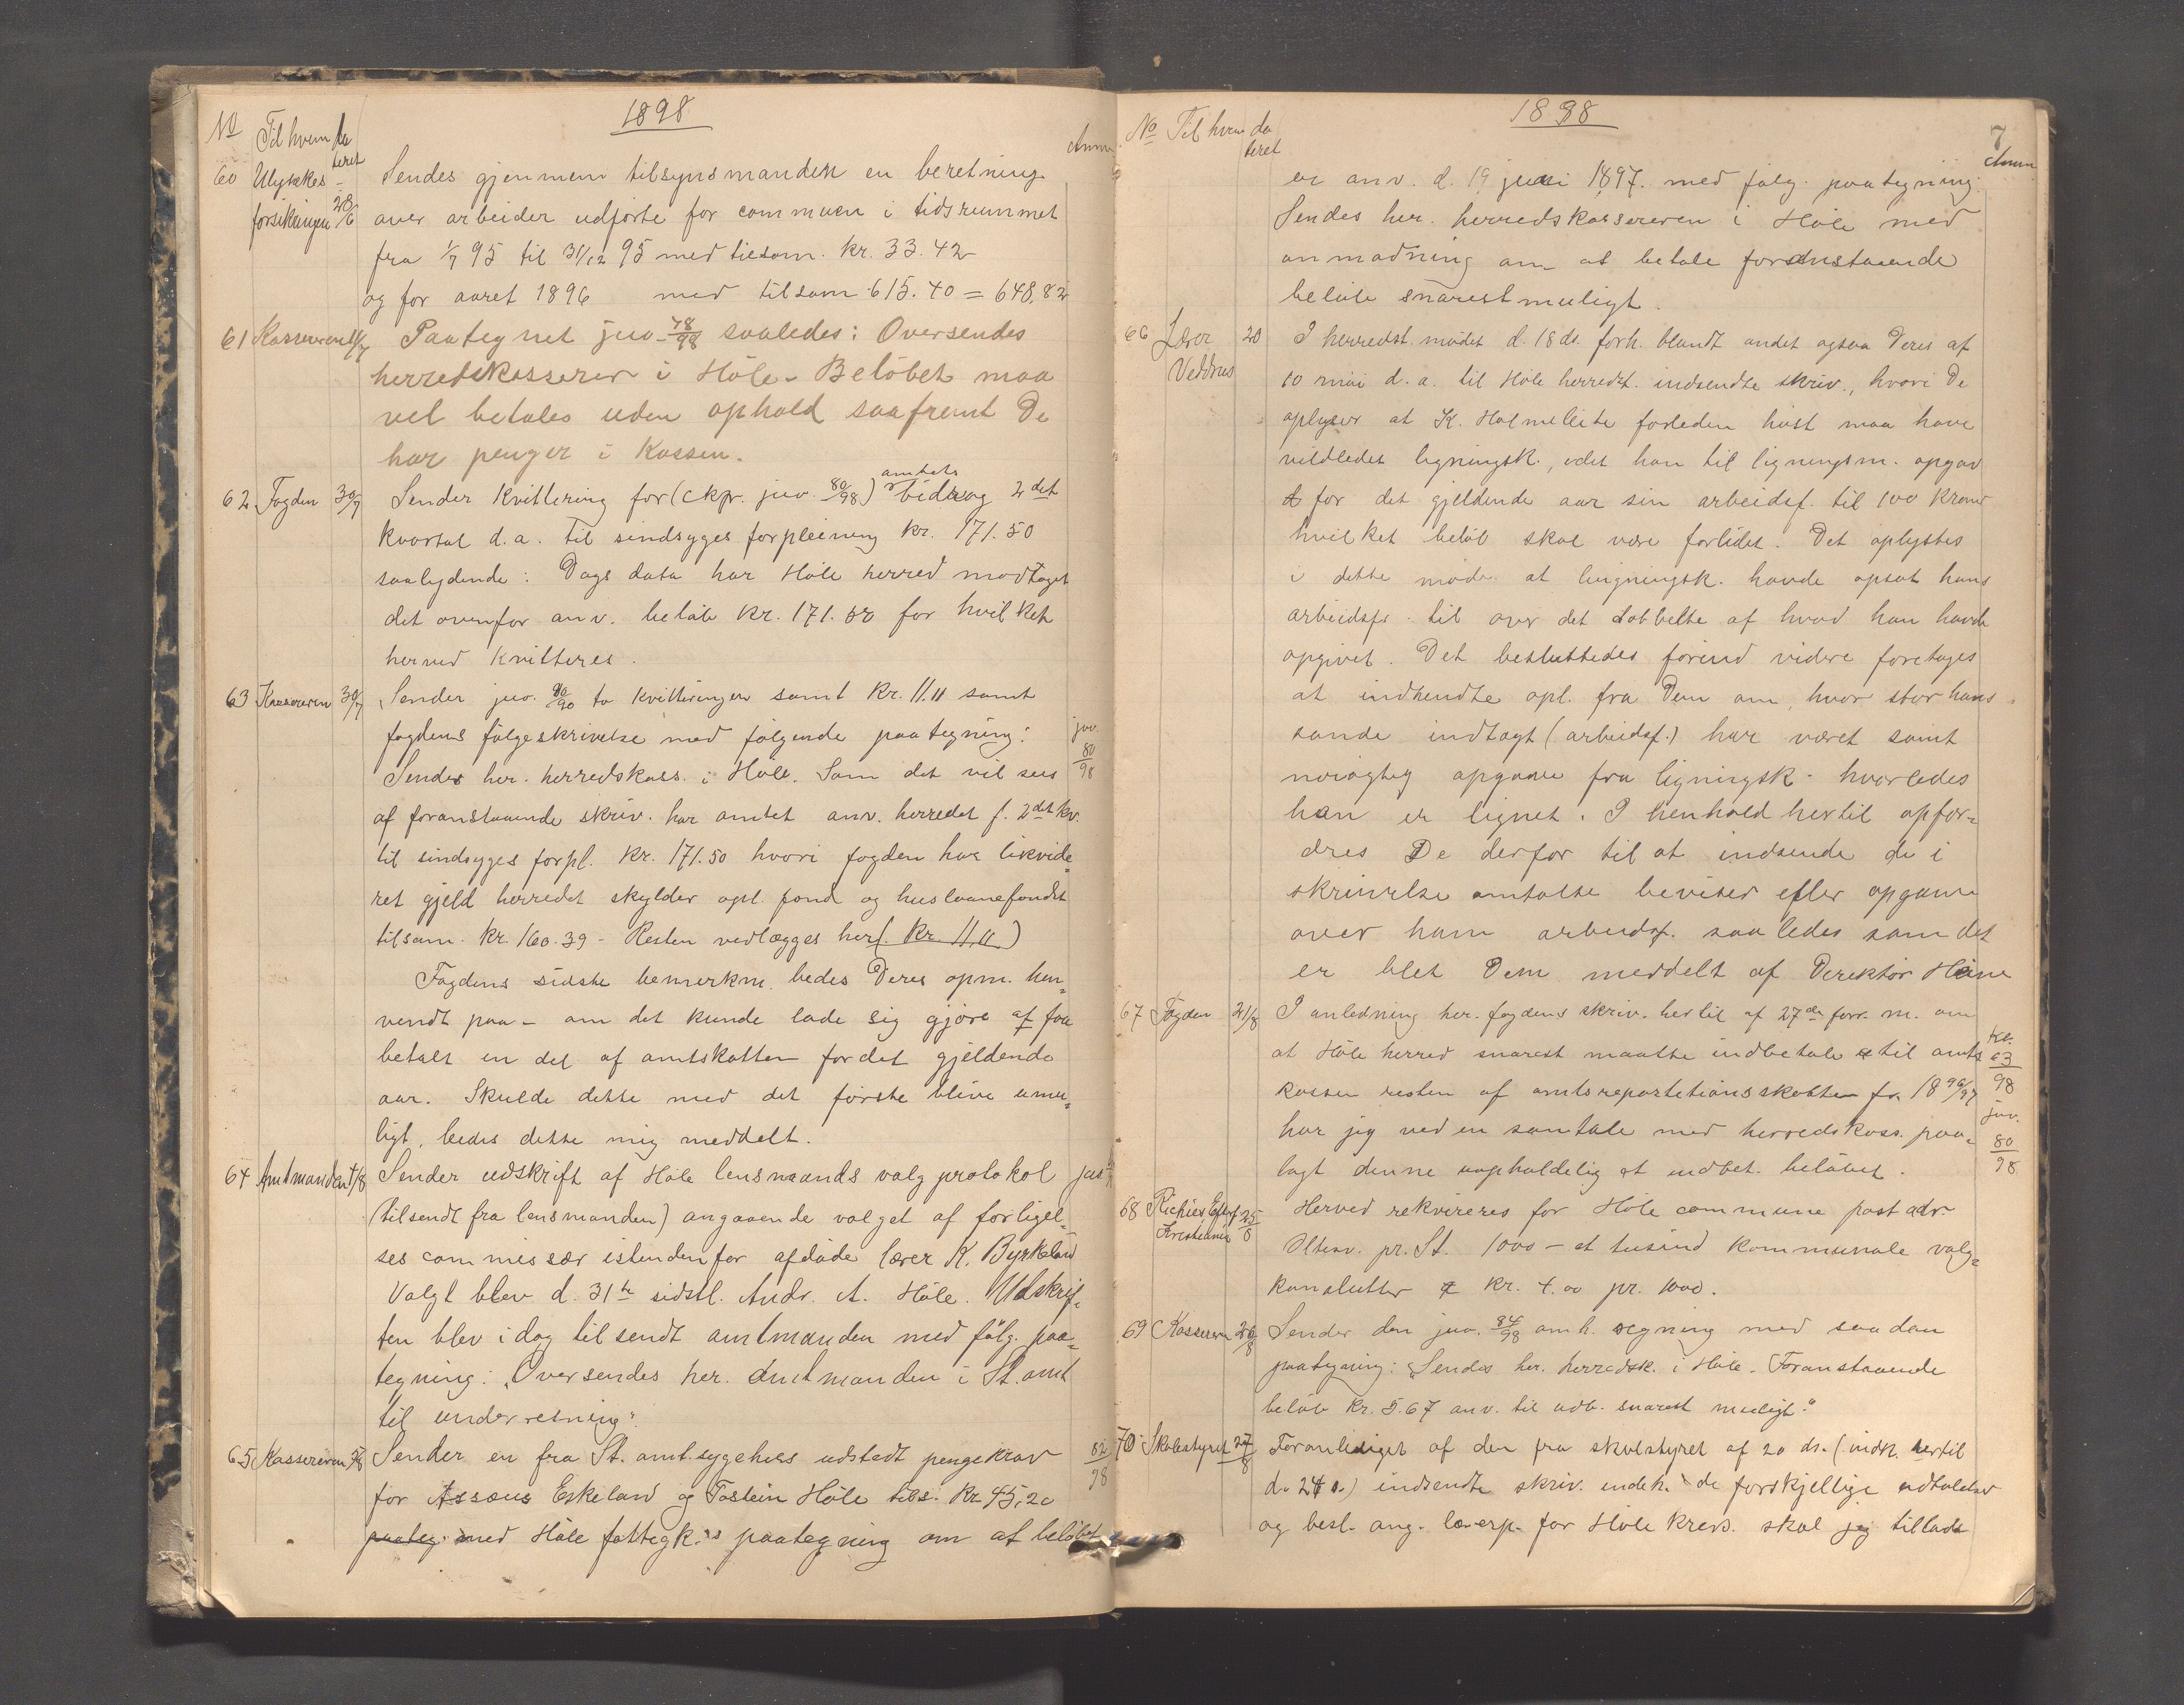 1898
No Til hvem da teret Anm
60 Ulykkes forsikringen 28/6 Sendes gjennem tilsynsmanden en beretning
over arbeider udførte for communen i tidsrummet
fra 1/7 95 til 31/12 95 med tilsam. kr. 33.42
og for aaret 1896 med tilsam 615.40 = 648,82
61 Kassereren Paategnet jno 78/98 saaledes: Oversendes
herredskasserer i Høle. Beløbet maa
vel betales uden ophold saafremt De
har penger i Kassen.
62 Fogden 30/7 Sender Kvittering for (ckpr. jno. 80/98) amtets bidrag 2det
kvartal d.a. til sindsyges forpleining kr. 171.50
saalydende: Dags dato har Høle herred modtaget
det ovenfor anv. beløb kr. 171.50 for hvilket
herved kvitteres.
63 Kassereren 30/7 Sender jno. 80/90 to kvitteringer samt kr. 11.11 samt
fogdens følgeskrivelse med følgende paategning: jno.
Sendes her. herredskass. i Høle. Som det vil sees 80/98
af foranstaaende skriv. har amtet anv. herredet f. 2det kv.
til sindsyges forpl. kr. 171.50 hvori fogden har likvide=
ret gjeld herredet skylder opl. fond og huslaanefondet
tilsam. kr. 160.39 - Resten vedlægges her (kr. 11.11)
Fogdens sidste bemerkn. bedes Deres opm. hen=
vendt paa - om det kunde lade sig gjøre at faa
betalt en del af amtskatten for det gjeldende
aar. Skulde dette med det første blive umu=
ligt, bedes dette mig meddelt.
64 Amtmanden 1/8 Sender udskrift af Høle lensmands valgprotokol
(tilsendt fra lensmanden) angaaende valget af forligel=
ses commissær istedenfor afdøde lærer K. Byrkeland
Valgt blev d. 31te sidstl. Andr. A. Høle. Udskrif=
ten blev i dag tilsendt amtmanden med følg. paa=
tegning: "Oversendes her. Amtmanden i St. amt
til underretning".
65 Kassereren Sender en fra St. amt. sygehus udstedt pengekrav 82/98
for Assous Eskeland og Tostein Høle tils. kr. 45,20
paateg. med Høle fattigk.s paategning om at beløbet
1898
7
No Til hvem da teret Anm
er anv. d. 19 juni 1897. med følg. paategning.
Sendes her. herredskassereren i Høle med
anmodning om at betale foranstaaende
beløb snarest muligt.
66 Lærer Veddrus 20 I herredst. mødet d. 18 ds. forh. blandt andet ogsaa Deres af
10 mai d.a. til Høle herredst. indsendte skriv., hvori De
oplyser at K. Holmeleite forleden høst maa have
vildledet ligningsk., idet han til ligningsm. opgav
for det gjeldende aar sin arbeidsf. til 100 kroner
hvilket beløb skal være forlidet. Det oplystes
i dette møde at ligningsk. havde opsat hans
arbeidsfr. til over det dobbelte af hvad han havde
opgivet. Det besluttedes førend videre foretages
at indhendte opl. fra Dem om, hvor stor hans
sande indtægt (arbeidsf.) har været samt
nøiagtig opgave fra ligningsk. hvorledes
han er lignet. I henhold hertil opfor=
dres De derfor til at indsende de i
skrivelse omtalte beviser efter opgave
over ham arbeidsf. saaledes som det
er blet Dem meddelt af Direktør Heine
67 Fogden 21/8 I anledning her. fogdens skriv. hertil af 27de forr. m. om
at Høle herred snarest maatte indbetale til amts 63/98
kassen resten af amtsrepartetionsskatten for 1896/97
har jeg ved en samtale med herredskass. paa= jno. 80/98
lagt denne uopholdelig at indbet. beløbet.
68 Kristiania 25/8 Herved rekvireres for Høle commune post adr.
pr. St. 1000 - et tusind kommunale valg=
konvolutter a kr. 4.00 pr. 1000.
69 Kasseren 26/8 Sender den jno. 84/98 omh. regning med saadan
paategning: "Sendes her. herredsk. i Høle. Foranstaaende
beløb kr. 5.67 anv. til udb. snarest muligt."
70 Skolestyret 27/8 Foranlediget af den fra skolstyret af 20 ds. (indk. hertil
d. 24 s.) indsendte skriv. indeh. de forskjellige udtalelser
og besl. ang. lærerp. for Høle kreds. skal jeg tillade